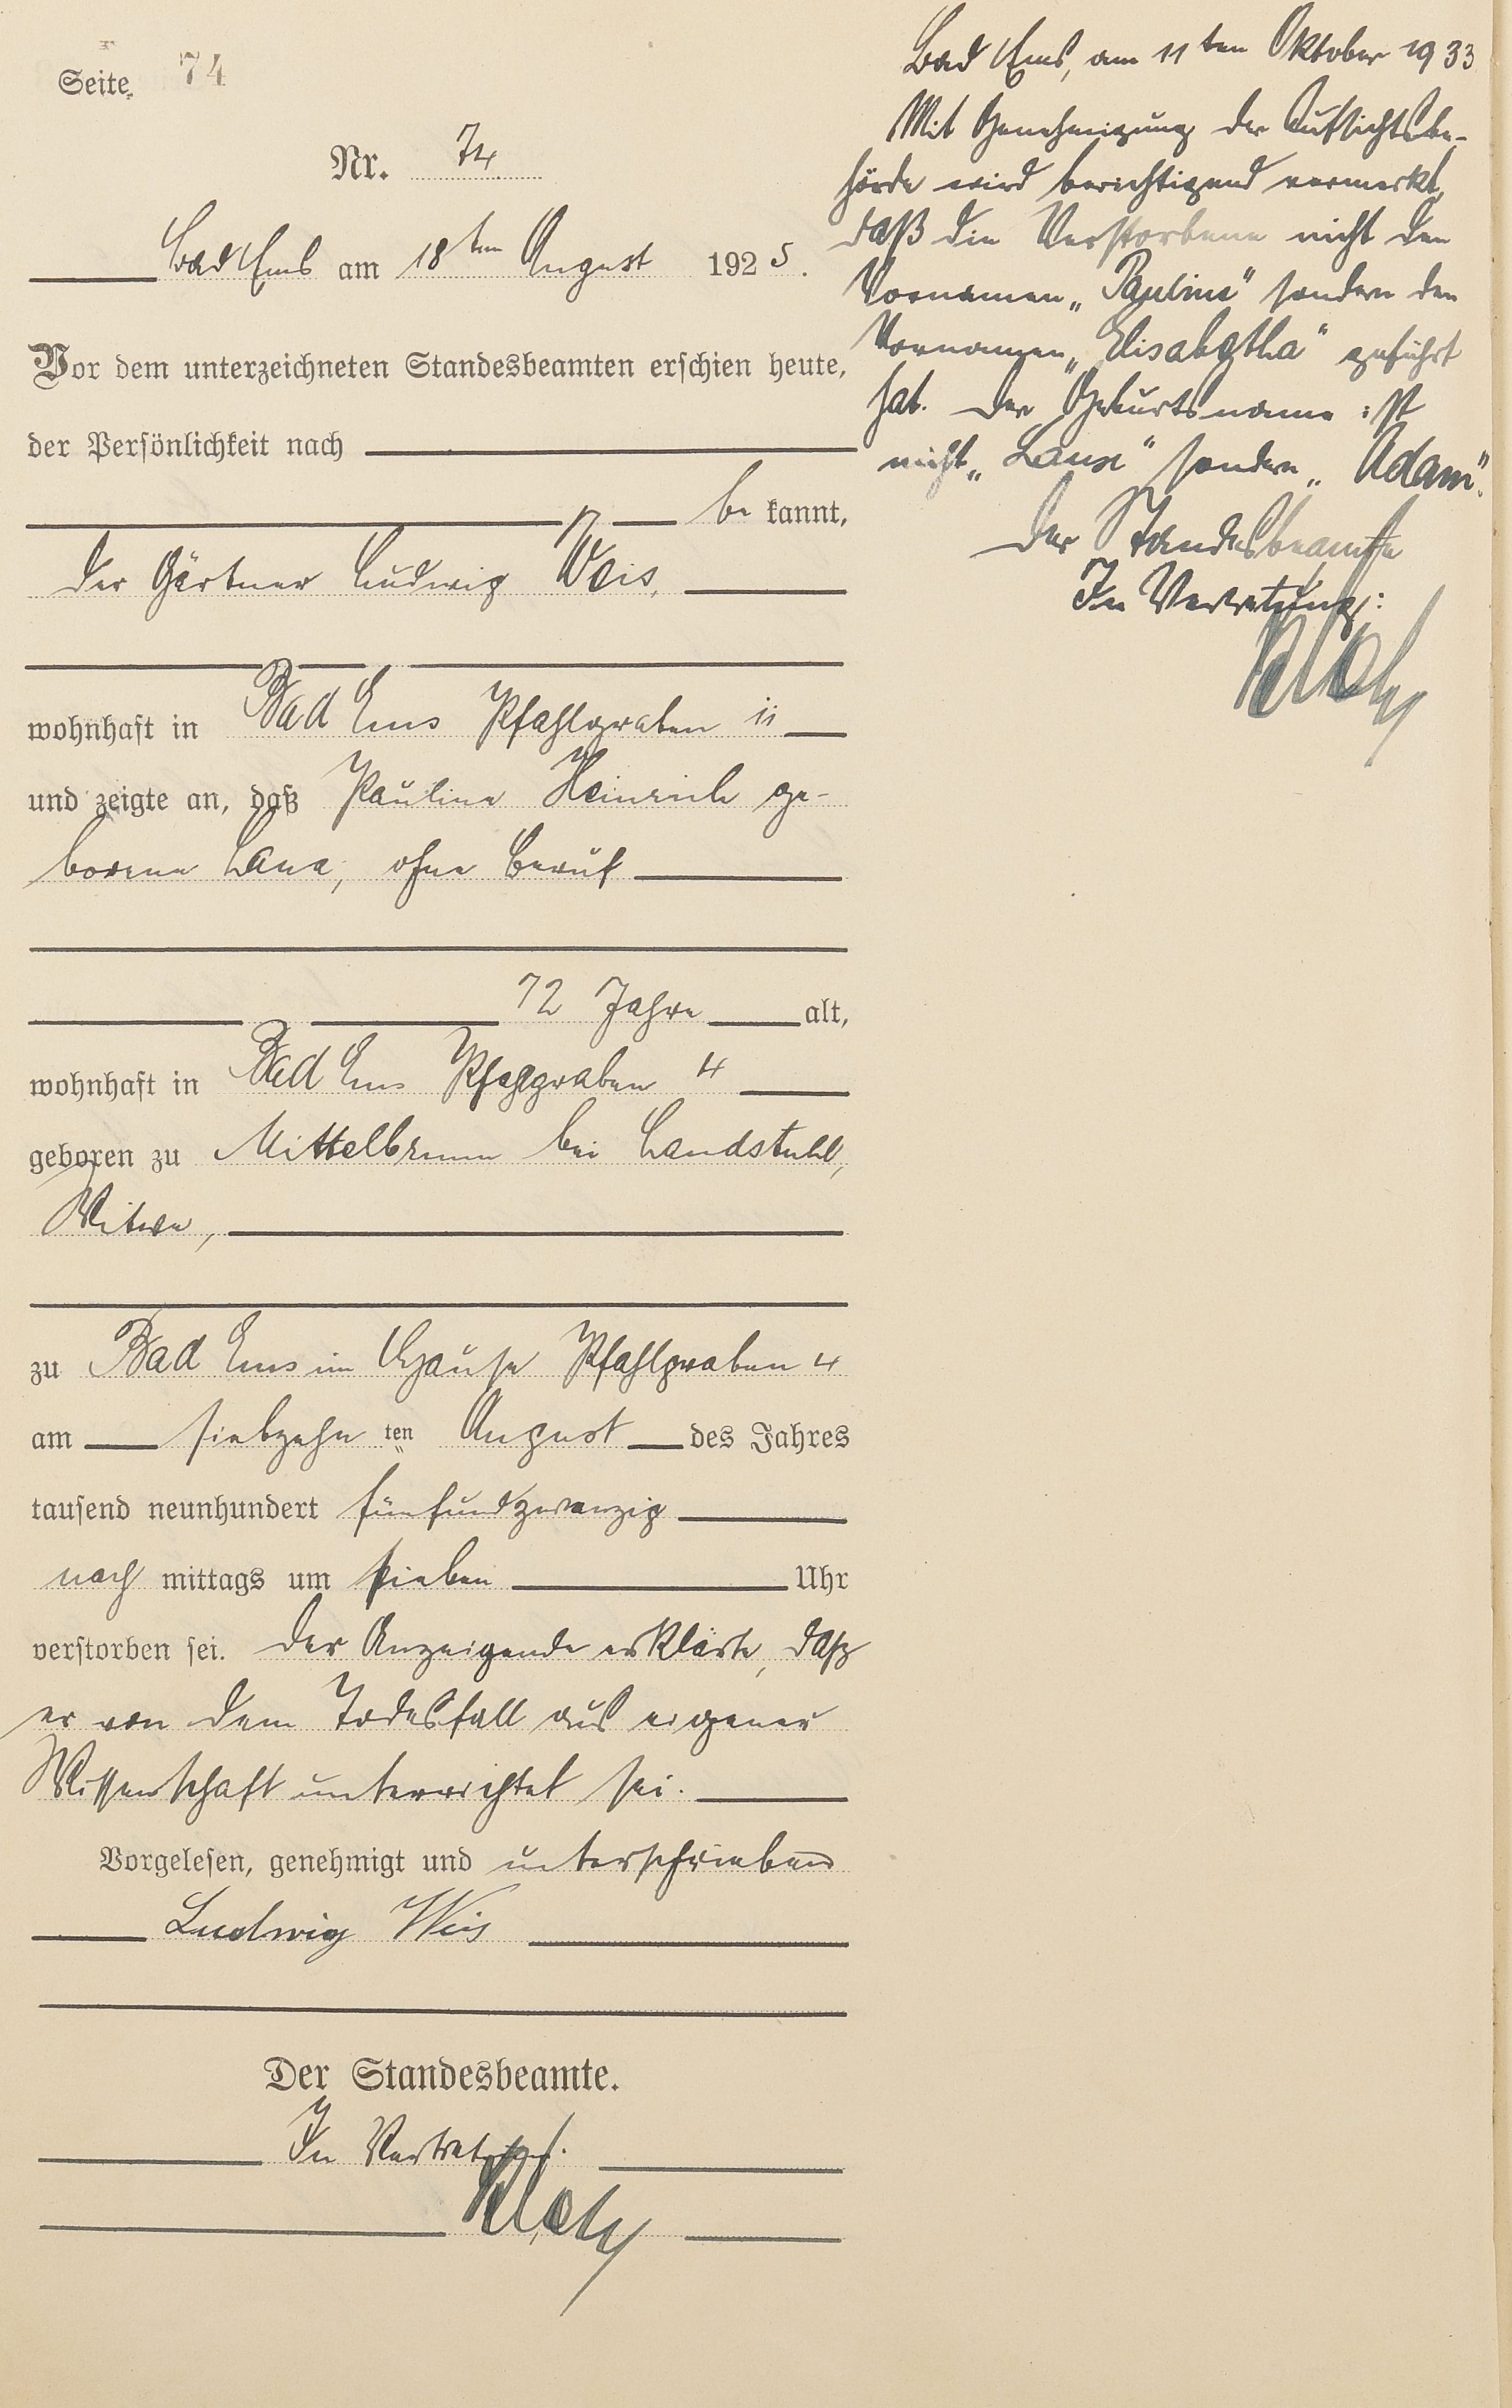 Seite 74
Nr. 74.
Bad Ems am 18ten August 1925.
Vor dem unterzeichneten Standesbeamten erschien heute,
der Persönlichkeit nach
be kannt,
der Gärtner Ludwig Weis,
wohnhaft in Bad Ems Pfahlgraben
und zeigte an, daß Pauline Heinrich ge-
borene Laux, ohne Beruf
72 Jahre alt,
wohnhaft in Bad Ems Pfahlgraben 4
geboren zu Mittelbrunn bei Landstuhl,
Witwe,
zu Bad Ems im Hause Pfahlgraben 4
am siebzehn ten August des Jahres
tausend neunhundert fünfundzwanzig
nach mittags um sieben Uhr
verstorben sei. Der Anzeigende erklärte, daß
er von dem Todesfall aus eigener
Wissenschaft unterrichtet sei.
Vorgelesen, genehmigt und unterschrieben
Ludwig Weis
Der Standesbeamte.
In Vertretung.
Bad Ems, am 11ten Oktober 1933
Mit Genehmigung der Aufsichtsbe-
hörde wird berichtigend vermerkt,
daß die Verstorbene nicht den
Vornamen „Pauline" sondern den
Vornamen „Elisabetha" geführt
hat. Der Geburtsname ist
nicht „Laux" sondern „Adam".
Der Standesbeamte
In Vertretung: